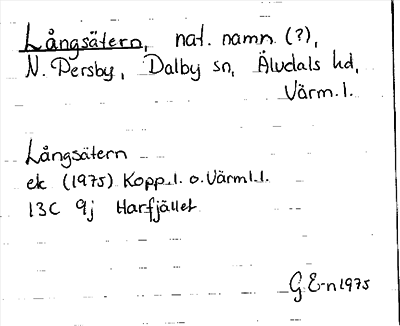 Långsätern, nat. namn (?),
N. Persby, Dalby sn, Älvdals hd,
Värm. l.
Långsätern
ek (1975) Kopp. l. o. Värml. l.
13C 9j Harfjället
G E-n 1975